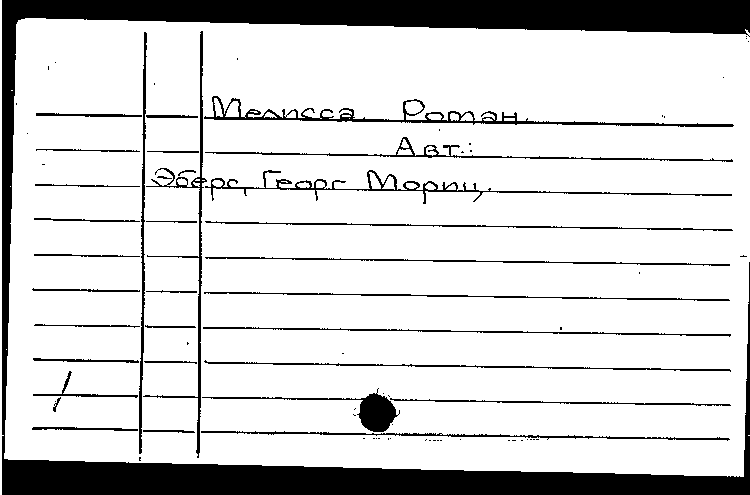 Мелисса. Роман.
Авт.:
Эберс, Георг Мориц.